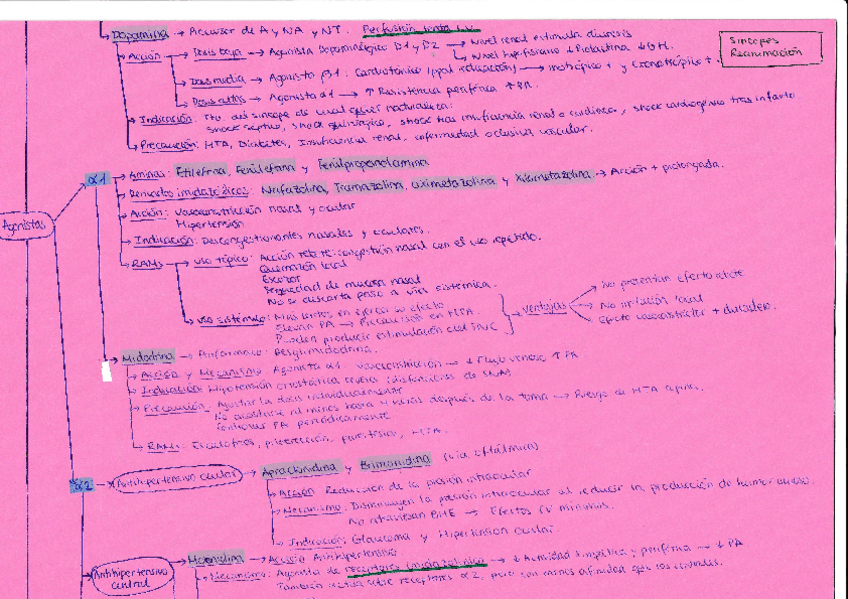 Dopamina → Precursor de A y NA y NT. Perfusión lenta i.v.
Síncopes
Reanimación
Acción → Dosis baja → Agonista Dopaminérgico D1 y D2 → Nivel renal estimula diuresis
Nivel hipofisiario ↓ Prolactina ↓ GH.
Dosis media → Agonista β1: Cardiotónico → Inotrópico + y Cronotrópico +.
Dosis altas → Agonista α1 → ↑ Resistencia periférica ↑ PA.
Indicación: Tto. de síncope de cualquier naturaleza:
shock séptico, shock quirúrgico, shock tras insuficiencia renal o cardíaca, shock cardiogénico tras infarto.
Precaución: HTA, Diabetes, Insuficiencia renal, enfermedad oclusiva vascular.
Agonistas
α1
Aminas: Etilefrina, Fenilefrina y Fenilpropanolamina
Derivados imidazólicos: Nafazolina, Tramazolina, Oximetazolina y Xilometazolina → Acción + prolongada.
Acción: Vasoconstricción nasal y ocular
Hipertensión
Indicación: Descongestionantes nasales y oculares.
RAMs → Uso tópico: Acción rebote: congestión nasal con el uso repetido.
Quemazón local
Escozor
Sequedad de mucosa nasal
No se descarta paso a vía sistémica.
Uso sistémico: Más lentos en ejercer su efecto
Elevan PA → Precaución en HTA.
Pueden producir estimulación del SNC
Ventajas
No presentan efecto rebote
No irritación local
Efecto vasoconstrictor + duradero.
Midodrina → Profármaco: Desglimidodrina.
Acción y Mecanismo: Agonista α1. Vasoconstricción → ↓ Flujo venoso ↑ PA
Indicación: Hipotensión ortostática severa: disfunciones de SNA
Precaución: Ajustar la dosis individualmente
No acostarse al menos hasta 4 horas después de la toma → Riesgo de HTA
Controlar PA periódicamente
RAMs: Escalofríos, piloerección, parestesias, HTA.
α2 → Antihipertensivo ocular → Apraclonidina y Brimonidina (vía oftálmica)
Acción: Reducción de la presión intraocular
Mecanismo: Disminuyen la presión intraocular al reducir la producción de humor acuoso.
No atraviesan BHE → Efectos CV mínimos.
Indicación: Glaucoma y Hipertensión ocular.
Antihipertensivo central
Moxonidina → Acción Antihipertensivo
Mecanismo: Agonista de receptores imidazólicos → ↓ Actividad simpática y periférica → ↓ PA
También actúa sobre receptores α2, pero con menos afinidad que los